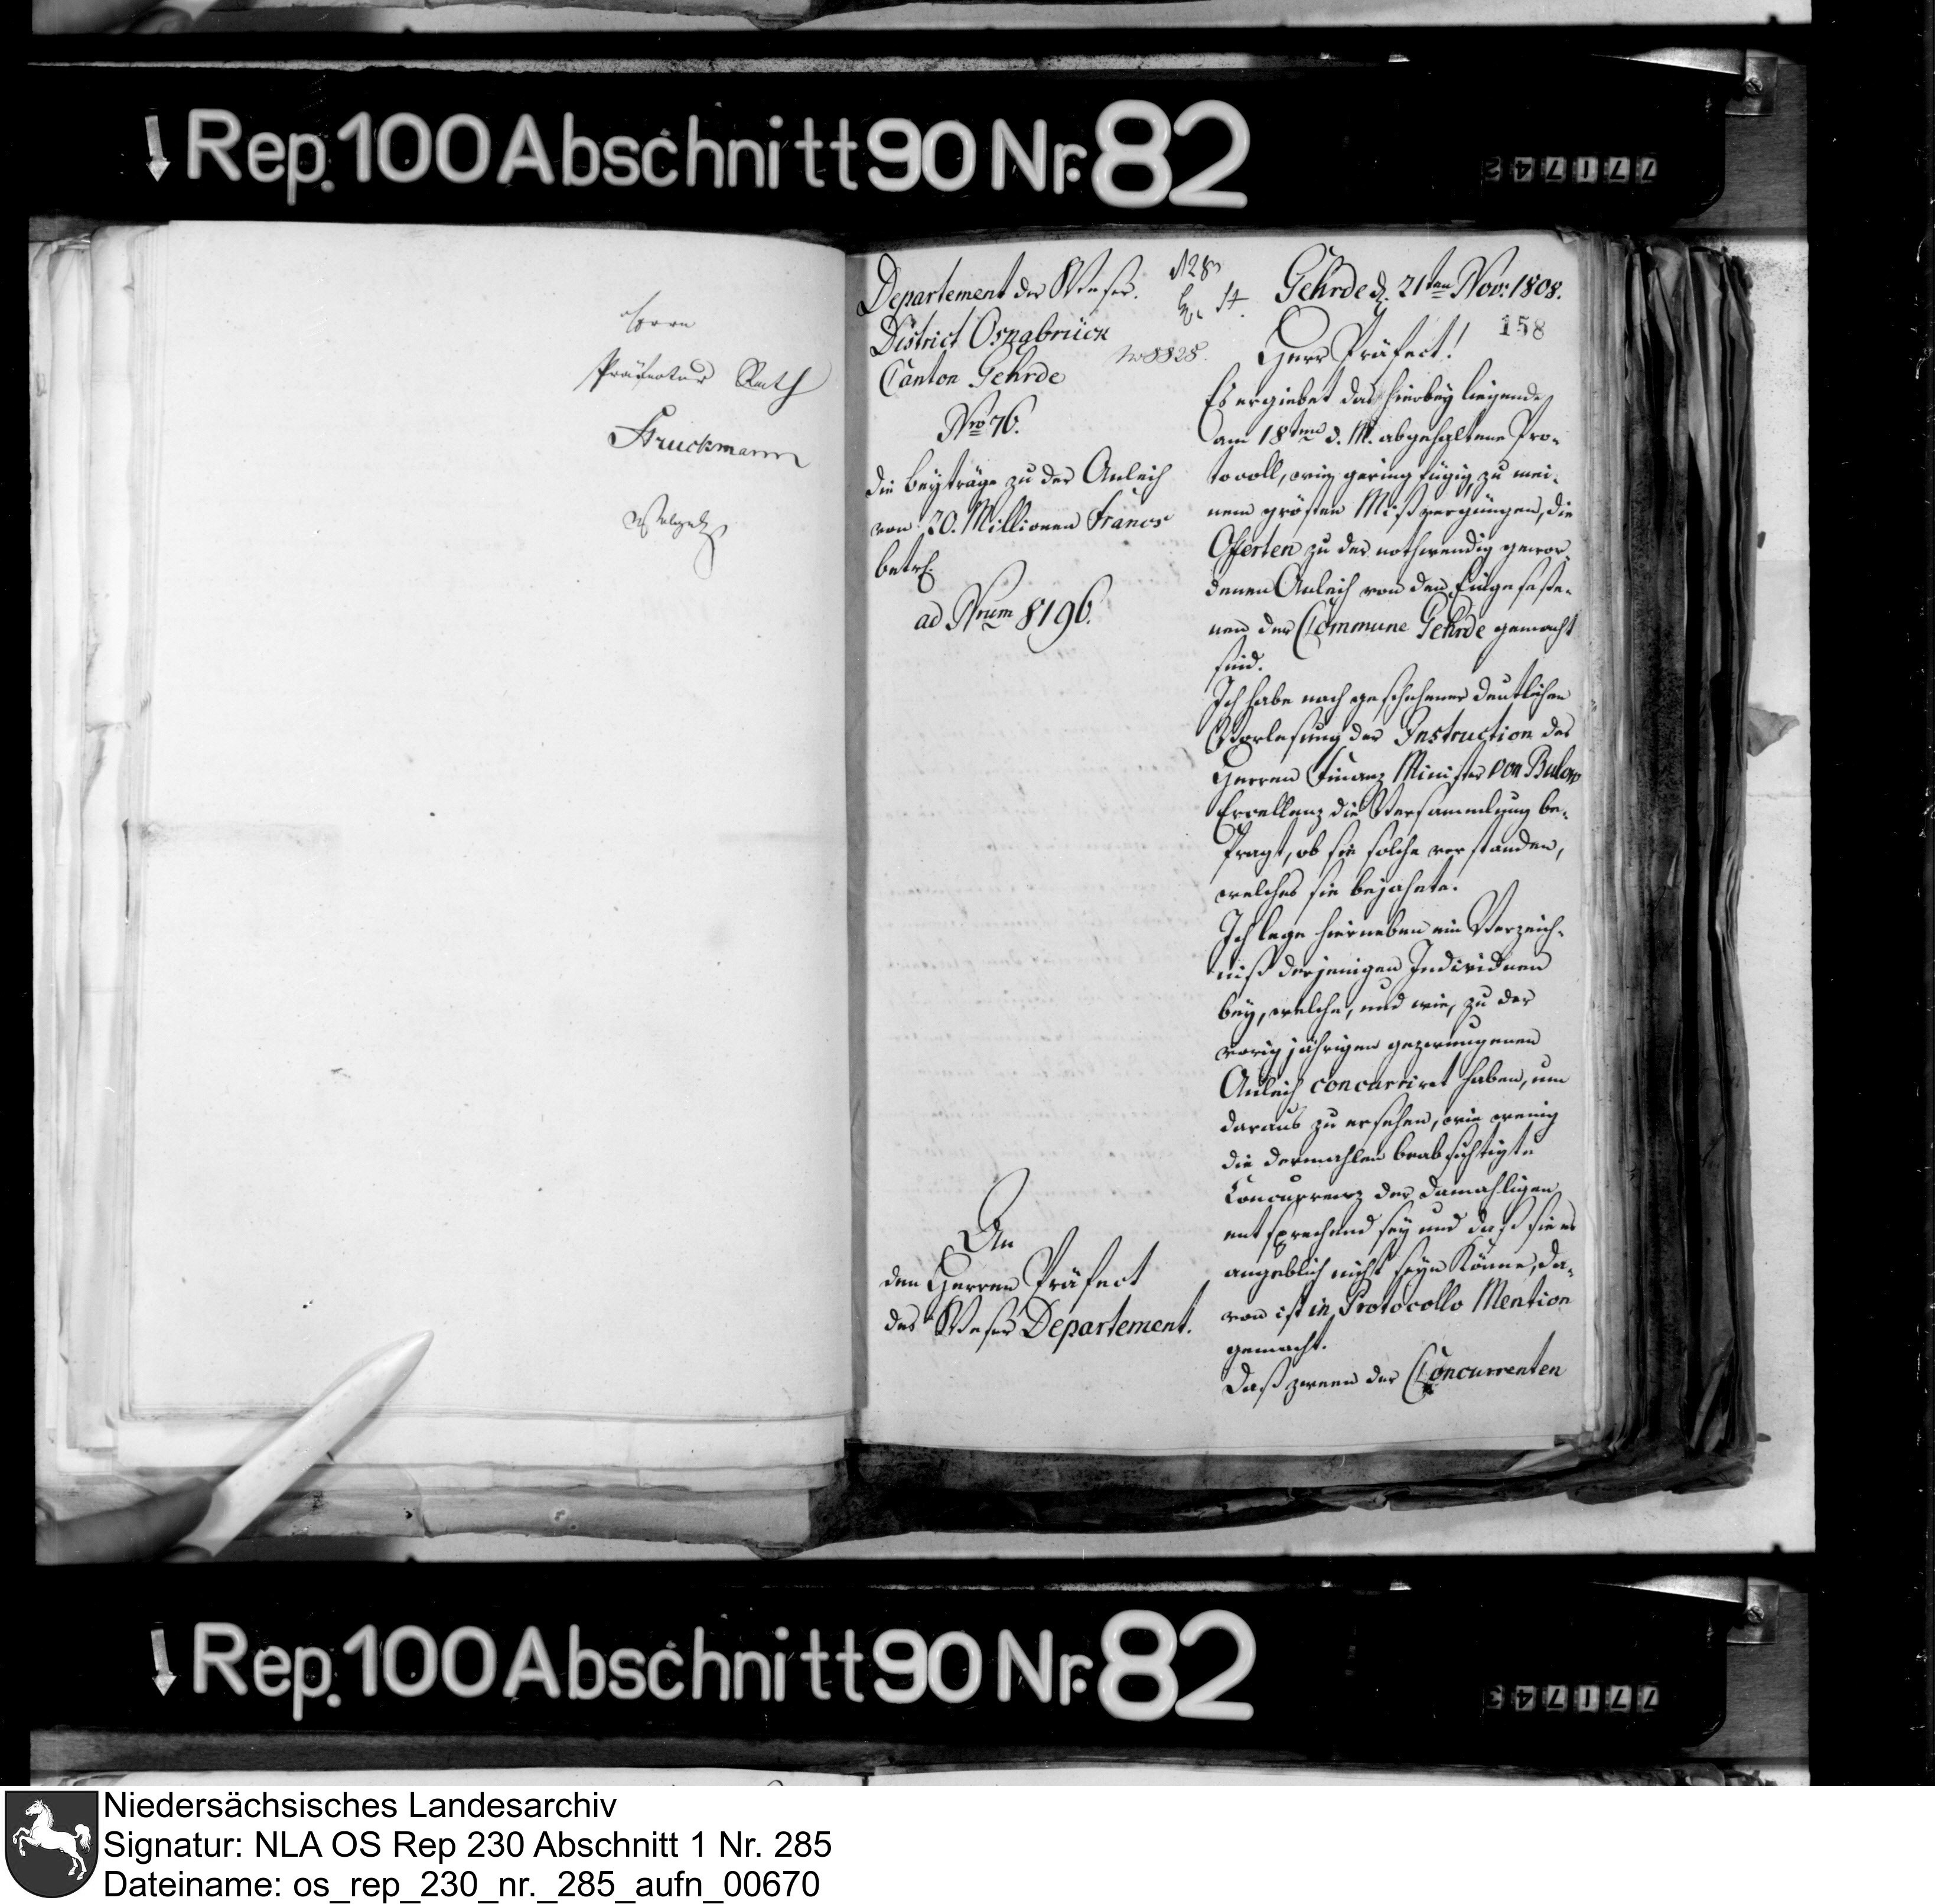 Rep. 100 Abschnitt 90 Nr. 82
771742
Herrn
Präfectur Rath
Struckmann
Departement der Weser.
District Osnabrück
Canton Gehrde
Nro 76.
die Beyträge zu der Anleih
von 20. Millionen Francs
betrf.
ad Nrum 8196.
An
den Herren Präfect
des Weser Departement.
No 8828.
Gehrde d. 21ten Nov: 1808.
158
Herr Präfect!
Es ergiebet das hierbey liegende
am 18ten d. M. abgehaltene Pro-
tocoll, wie gering fügig zu mei-
nem grösten Mißvergnügen, die
Offerten zu der nothwendig gewor-
denen Anleih von den Eingeseße-
nen der Commune Gehrde gemacht
sind.
Ich habe nach geschehener deutlichen
Vorlesung der Instruction des
Herren Finanz Minister von Bulow
Excellenz die Versammlung be-
fragt, ob sie solche verstanden,
welches sie bejahete.
Ich lege hierneben ein Verzeich-
niß derjenigen Individuen
bey, welche, und wie, zu der
vorig jährigen gezwungenen
Anleih concurriret haben, um
daraus zu ersehen, wie wenig
die dermahlen beabsichtigte
Concurrenz der damahligen
entsprechend sey und daß sie es
angeblich nicht seyn könne, da-
von ist in Protocollo Mention
gemacht.
Daß zween der Concurrenten
Rep. 100 Abschnitt 90 Nr. 82
771743
Niedersächsisches Landesarchiv
Signatur: NLA OS Rep 230 Abschnitt 1 Nr. 285
Dateiname: os_rep_230_nr._285_aufn_00670